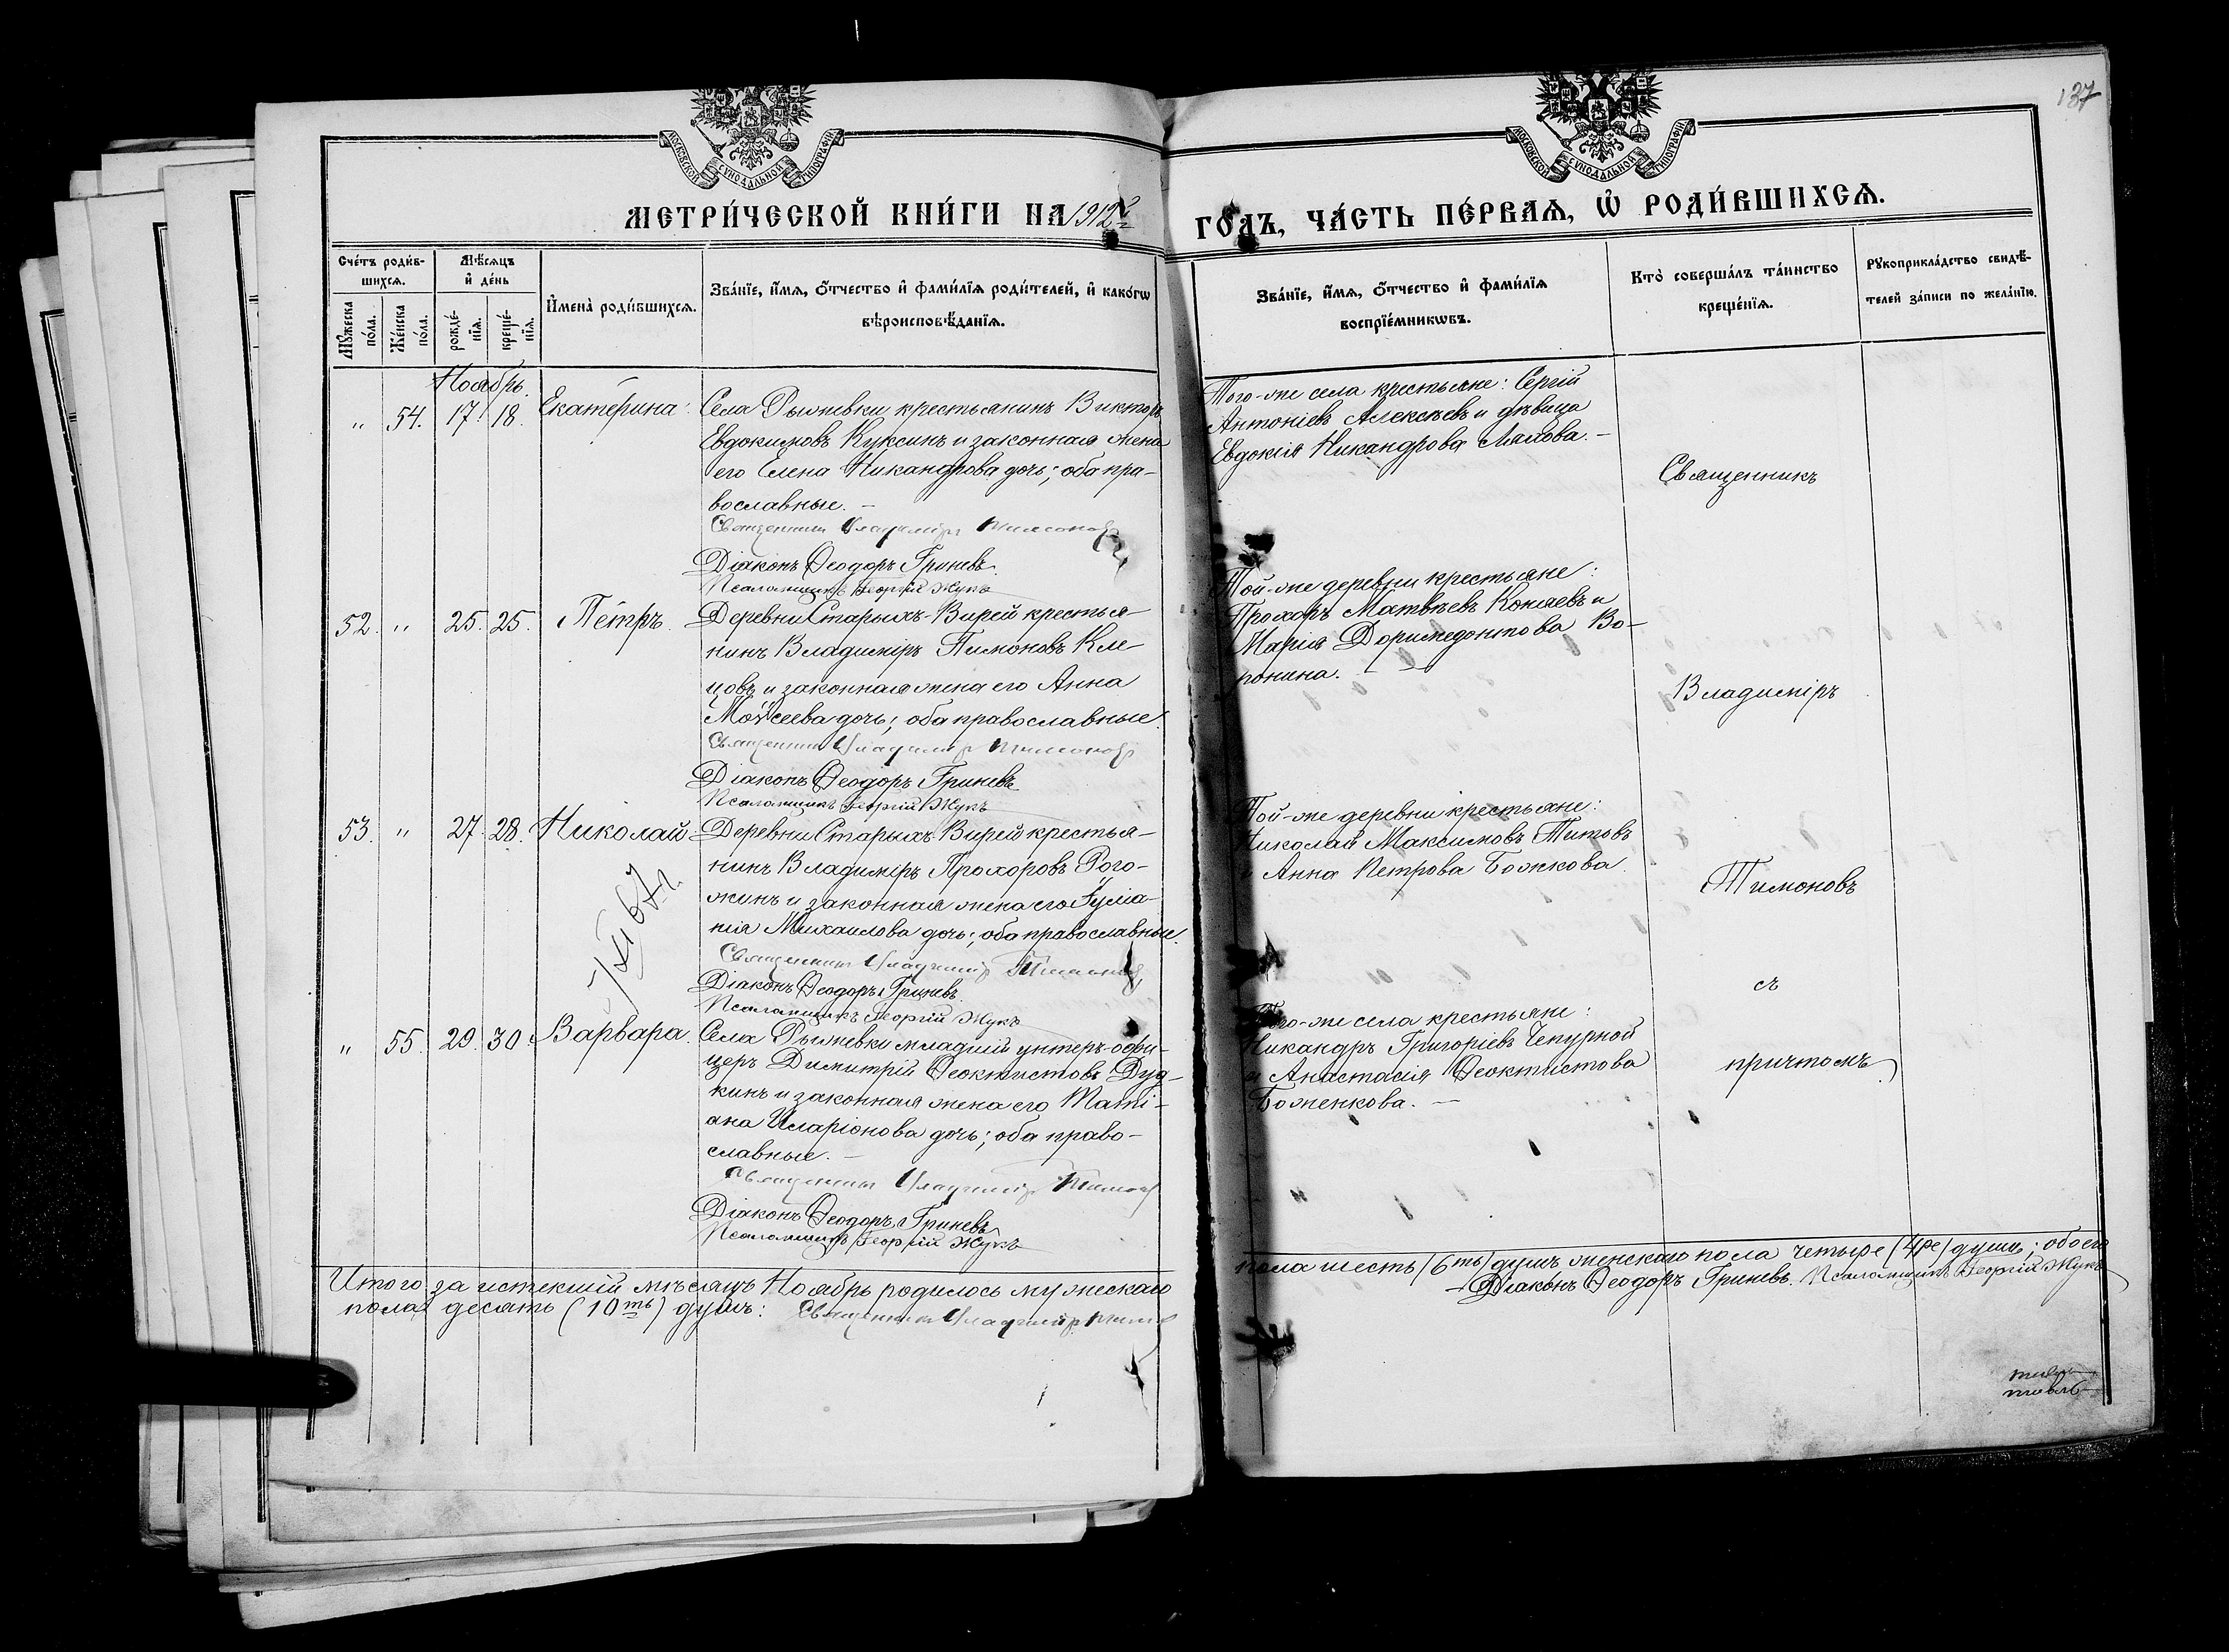 137
МОСКОВСКОЙ СѴНОДАЛЬНОЙ ТИПОГРАФІИ
МОСКОВСКОЙ СѴНОДАЛЬНОЙ ТИПОГРАФІИ
МЕТРИ́ЧЕСКОЙ КНИ́ГИ НА 1912 ГО́ДЪ, ЧА́СТЬ ПЕ́РВАѦ, Ѡ҆ РОДИ́ВШИХСѦ.
Сче́тъ роди́в-
шихсѧ.
Мꙋ́жеска
по́ла.
Же́нска
по́ла.
Мѣ́сѧцъ
и҆ де́нь
рожде́-
нїѧ.
креще́-
нїѧ.
И҆мена̀ роди́вшихсѧ.
Зва́нїе, и҆́мѧ, ѻ҆́тчество и҆ фами́лїѧ роди́телей, и҆ како́гѡ
вѣроисповѣ́данїѧ.
Зва́нїе, и҆́мѧ, ѻ҆́тчество и҆ фами́лїѧ
воспрїе́мникѡвъ.
Кто̀ соверша́лъ та́инство
креще́нїѧ.
Рꙋкоприкла́дство свидѣ́-
телей за́писи по жела́нїю.
Ноябрь.
" 54. 17. 18. Екатерина.
Села Рыжевки крестьянинъ Викторъ
Евдокимовъ Куксинъ и законная жена
его Елена Никандрова дочь; оба пра-
вославные. –
Священникъ Владиміръ Тимоновъ
Діаконъ Ѳеодоръ Гриневъ.
Псаломщикъ Георгій Жукъ
Того-же села крестьяне: Сергій
Антоніевъ Алексѣевъ и дѣвица
Евдокія Никандрова Ляхова. –
52. " 25. 25. Петръ.
Деревни Старыхъ-Вирей крестья-
нинъ Владиміръ Пимоновъ Кле-
цовъ и законная жена его Анна
Моѵсеева дочь; оба православные.
Священникъ Владиміръ Тимоновъ
Діаконъ Ѳеодоръ Гриневъ
Псаломщикъ Георгій Жукъ
Той-же деревни крестьяне:
Прохоръ Матвѣевъ Коняевъ и
Марія Доримедонтова Во-
ронина. –
53. " 27. 28. Николай.
Деревни Старыхъ-Вирей крестья-
нинъ Владиміръ Прохоровъ Рого-
жинъ и законная жена его Іуліа-
нія Михаилова дочь; оба православные.
Священникъ Владиміръ Тимоновъ
Діаконъ Ѳеодоръ Гриневъ.
Псаломщикъ Георгій Жукъ
Той-же деревни крестьяне:
Николай Максимовъ Титовъ
и Анна Петрова Божкова.
" 55. 29. 30. Варвара.
Села Рыжевки младшій унтеръ-офи-
церъ Димитрій Ѳеоктистовъ Дуд-
кинъ и законная жена его Таті-
ана Иларіонова дочь; оба право-
славные. –
Священникъ Владиміръ Тимоновъ
Діаконъ Ѳеодоръ Гриневъ
Псаломщикъ Георгій Жукъ
Того-же села крестьяне:
Никандръ Григоріевъ Чепурной
и Анастасія Ѳеоктистова
Боженкова. –
Священникъ
Владиміръ
Тимоновъ
съ
причтомъ
Итого за истекшій мѣсяцъ Ноябрь родилось мужескаго
пола шесть (6ть) душъ женскаго пола четыре (4ре) души; обоего
пола десять (10ть) душъ: Священникъ Владиміръ Тимо
– Діаконъ Ѳеодоръ Гриневъ. Псаломщикъ Георгій Жукъ